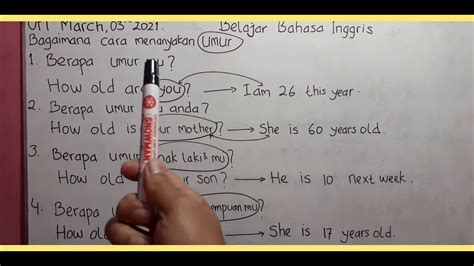 March, 03rd 2021. Belajar Bahasa Inggris
Bagaimana cara menanyakan Umur
1. Berapa umur ?
How old are you? → I am 26 this year.
2. Berapa umur anda?
How old is mother? → She is 60 years old.
3. Berapa umur laki² mu?
How old son? → He is 10 next week.
4. Berapa ?
How old ? → She is 17 years old.
SNOWMAN